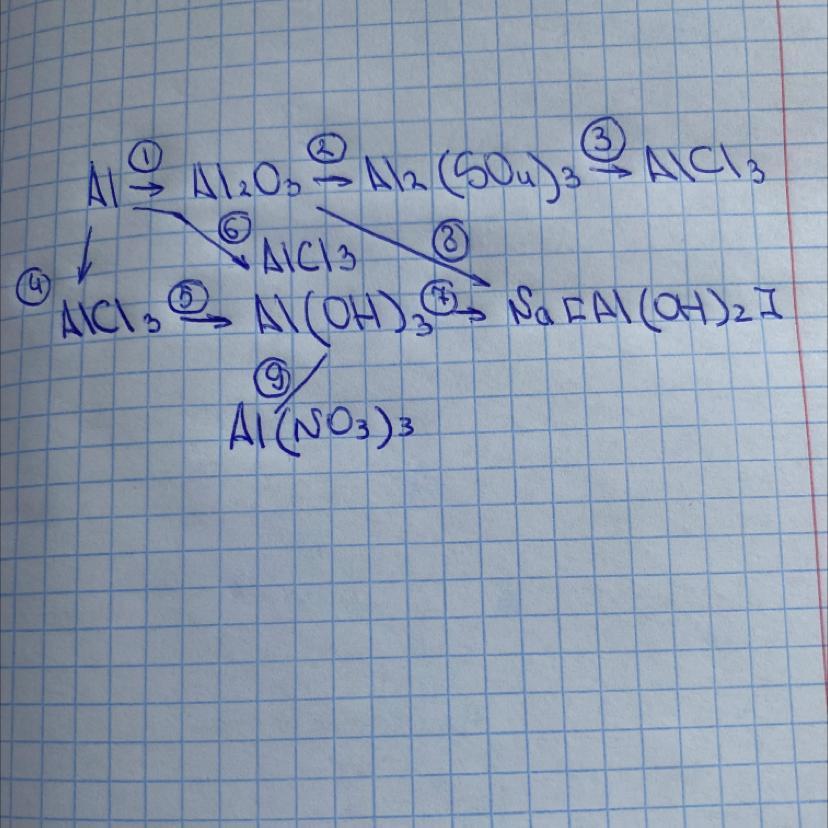 ① ② ③
Al → Al₂O₃ → Al₂(SO₄)₃ → AlCl₃
⑥ AlCl₃ ⑧
④ AlCl₃ ⑤→ Al(OH)₃ ⑦→ Na[Al(OH)₂]
⑨
Al(NO₃)₃